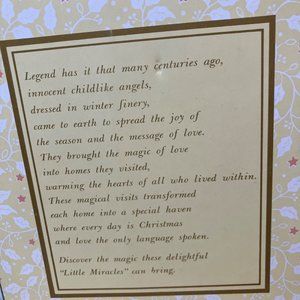 Legend has it that many centuries ago,
innocent childlike angels,
dressed in winter finery,
came to earth to spread the joy of
the season and the message of love.
They brought the magic of love
into homes they visited,
warming the hearts of all who lived within.
These magical visits transformed
each home into a special haven
where every day is Christmas
and love the only language spoken.
Discover the magic these delightful
"Little Miracles" can bring.